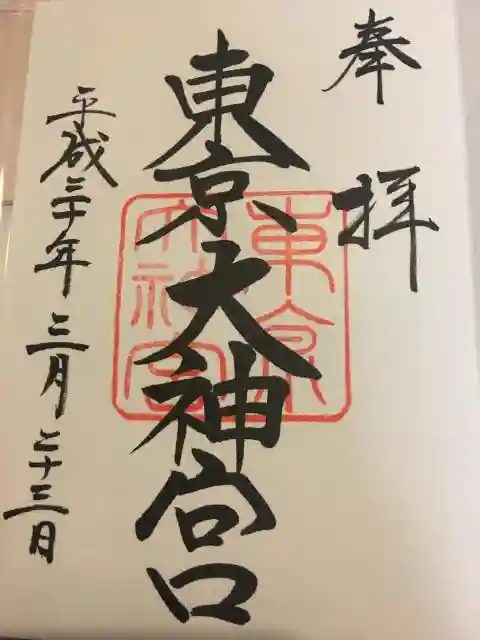 奉拝
東京大神宮
東京
大神宮
平成三十年三月二十三日